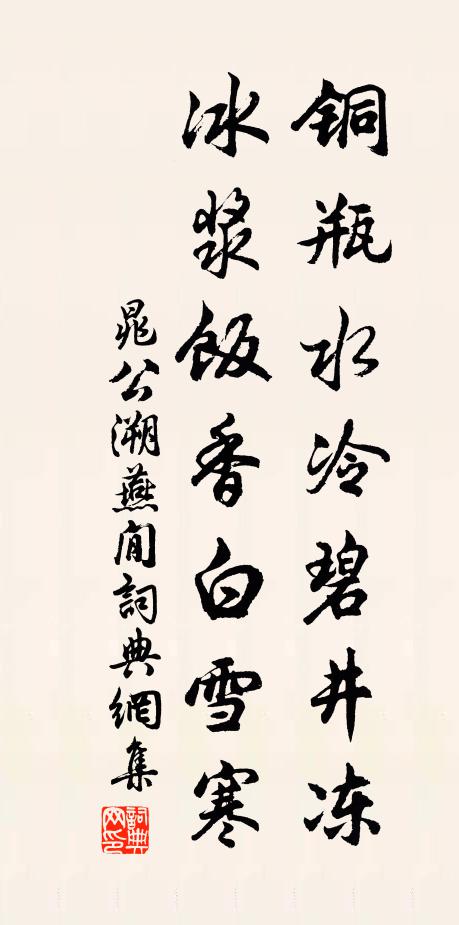 铜瓶水冷碧井冻
冰浆饭香白雪寒
晁公溯燕閒詞典網集
詞典网印